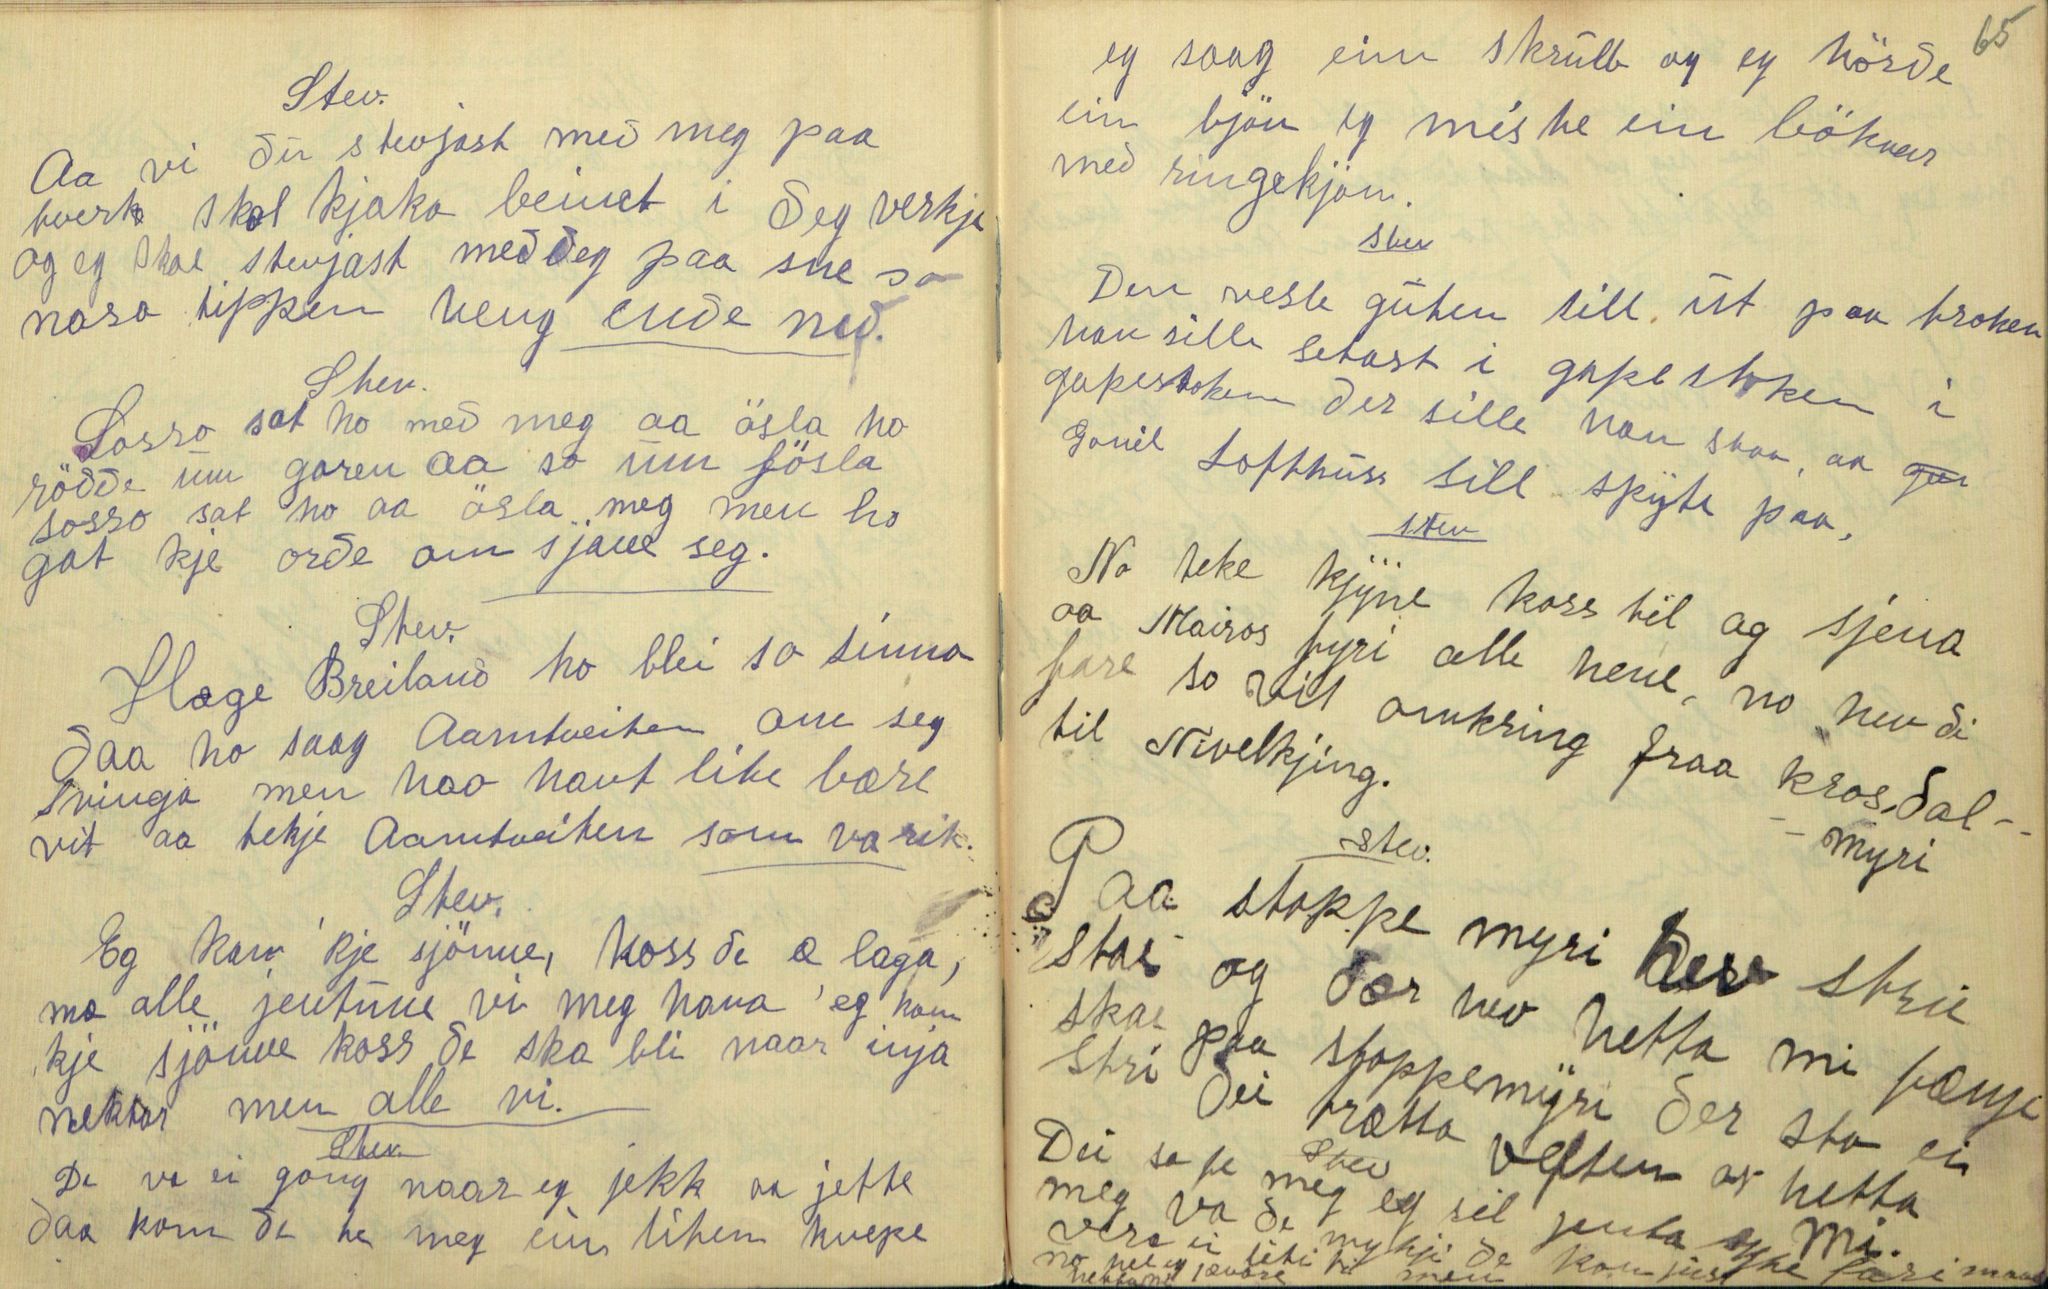 Stev.
Aa vi ðu stevjast með meg paa
hverk skal kjaka beinet i ðeg verkje
og eg skal stevjast með ðeg paa sne so
nasa tippen heng enðe neð.
Stev.
Sosso sat ho með meg aa ösla ho
röððe um garen aa so um fjösla
sosso sat ho aa ösla meg men ho
gat kje orðe om sjave seg.
Stev.
Hæge Breiland ho blei so sinna
ðaa ho saag Aamtveiten om seg
svinga men hao havt like bære
vit aa tekje Aamtveiten som va rik.
Stev.
Eg kan 'kje sjönne, koss ðe æ laga,
ma alle jentune vi meg hava 'eg kan
kje sjönne koss ðe ska bli naar inja
nektar men alle vi.
Stev.
De va ei gong naar eg jekk aa jette
ðaa kom ðe te meg ein liten kvepe
65
eg saag ein skrubb og eg hörðe
ein bjön eg miste ein bökvar
með ringekjon.
Stev
Den vesle guten sill ut paa broken
han sille setast i gapestoken i
gapestoken ðer sille han staa, aa
Gonil Lofthuss sill spÿte paa,
stev
No teke kjÿne koss til og sjena
aa Mairos fyri alle hene, no hev ði
fare so vit omkring fraa krosðal-
myri
til Nivelkjing.
stev.
Paa stoppe myri hev strie
stae og ðær hev hetta mi fænje
skae paa stoppemÿri ðer sto ei
stri ðei trætta velten av hetta
mi.
Stev
Dei sa te meg eg sil jenta
meg va ðe mykji ðe kan
vera ei liti men
no hev eg
hetta